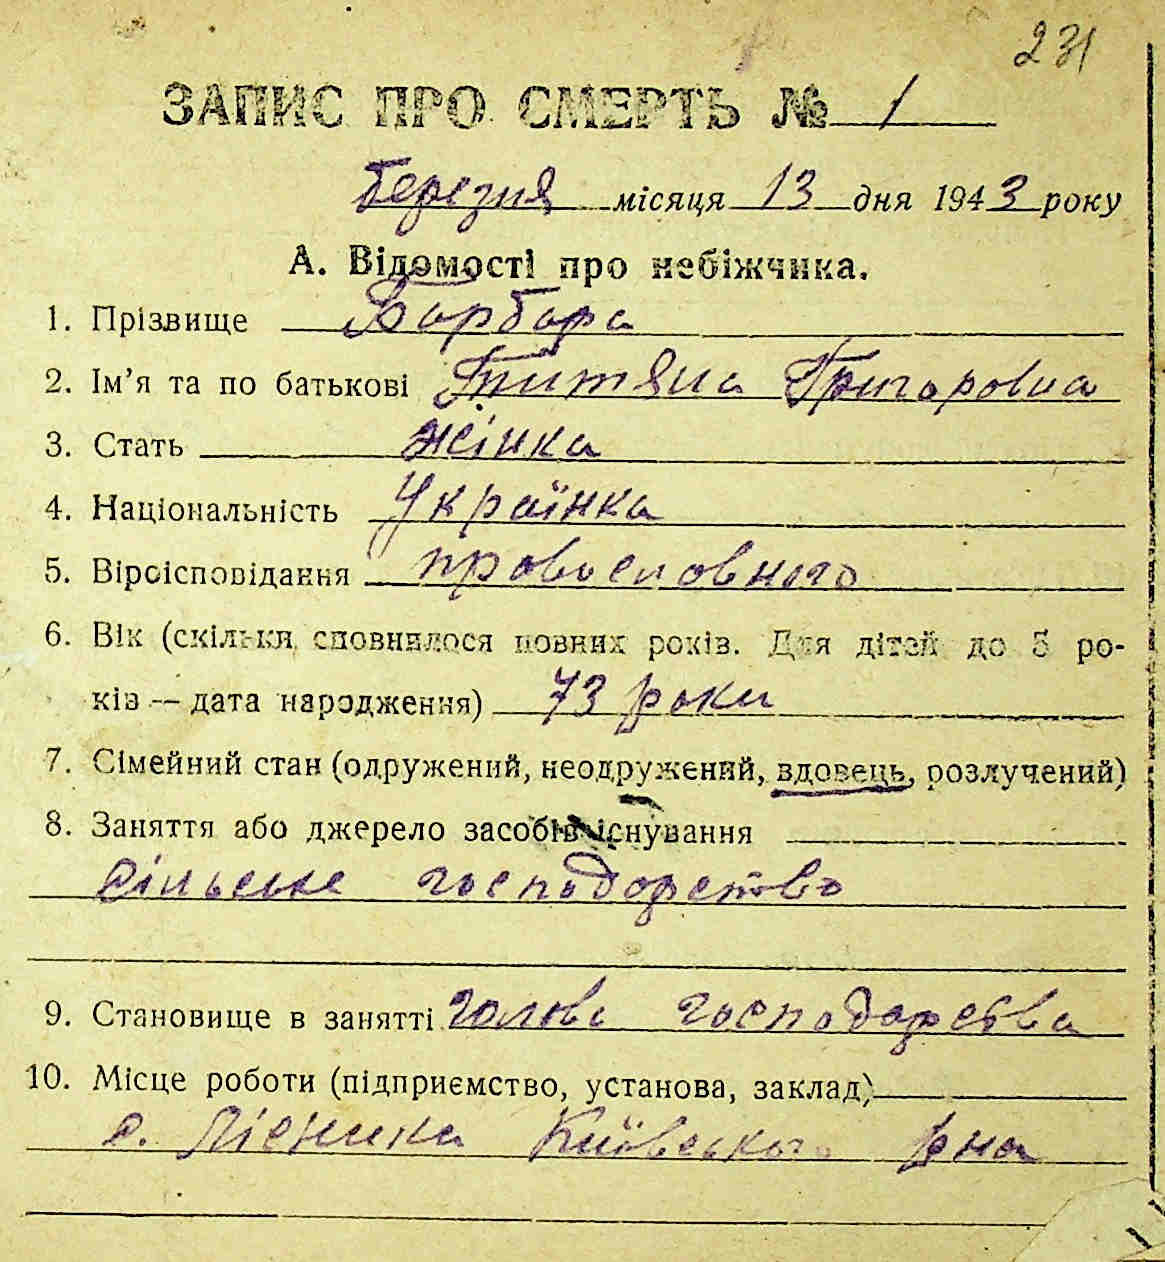 231
ЗАПИС ПРО СМЕРТЬ № 1
Березня місяця 13 дня 1943 року
А. Відомості про небіжчика.
1. Прізвище Барбара
2. Ім’я та по батькові Титяна Григоровна
3. Стать жінка
4. Національність Українка
5. Віроісповідання провославного
6. Вік (скільки сповнилося повних років. Для дітей до 5 ро-
ків — дата народження) 73 роки
7. Сімейний стан (одружений, неодружений, вдовець, розлучений)
8. Заняття або джерело засобів існування
сільське господарство
9. Становище в занятті голова господарства
10. Місце роботи (підприємство, установа, заклад)
с. Київського рна